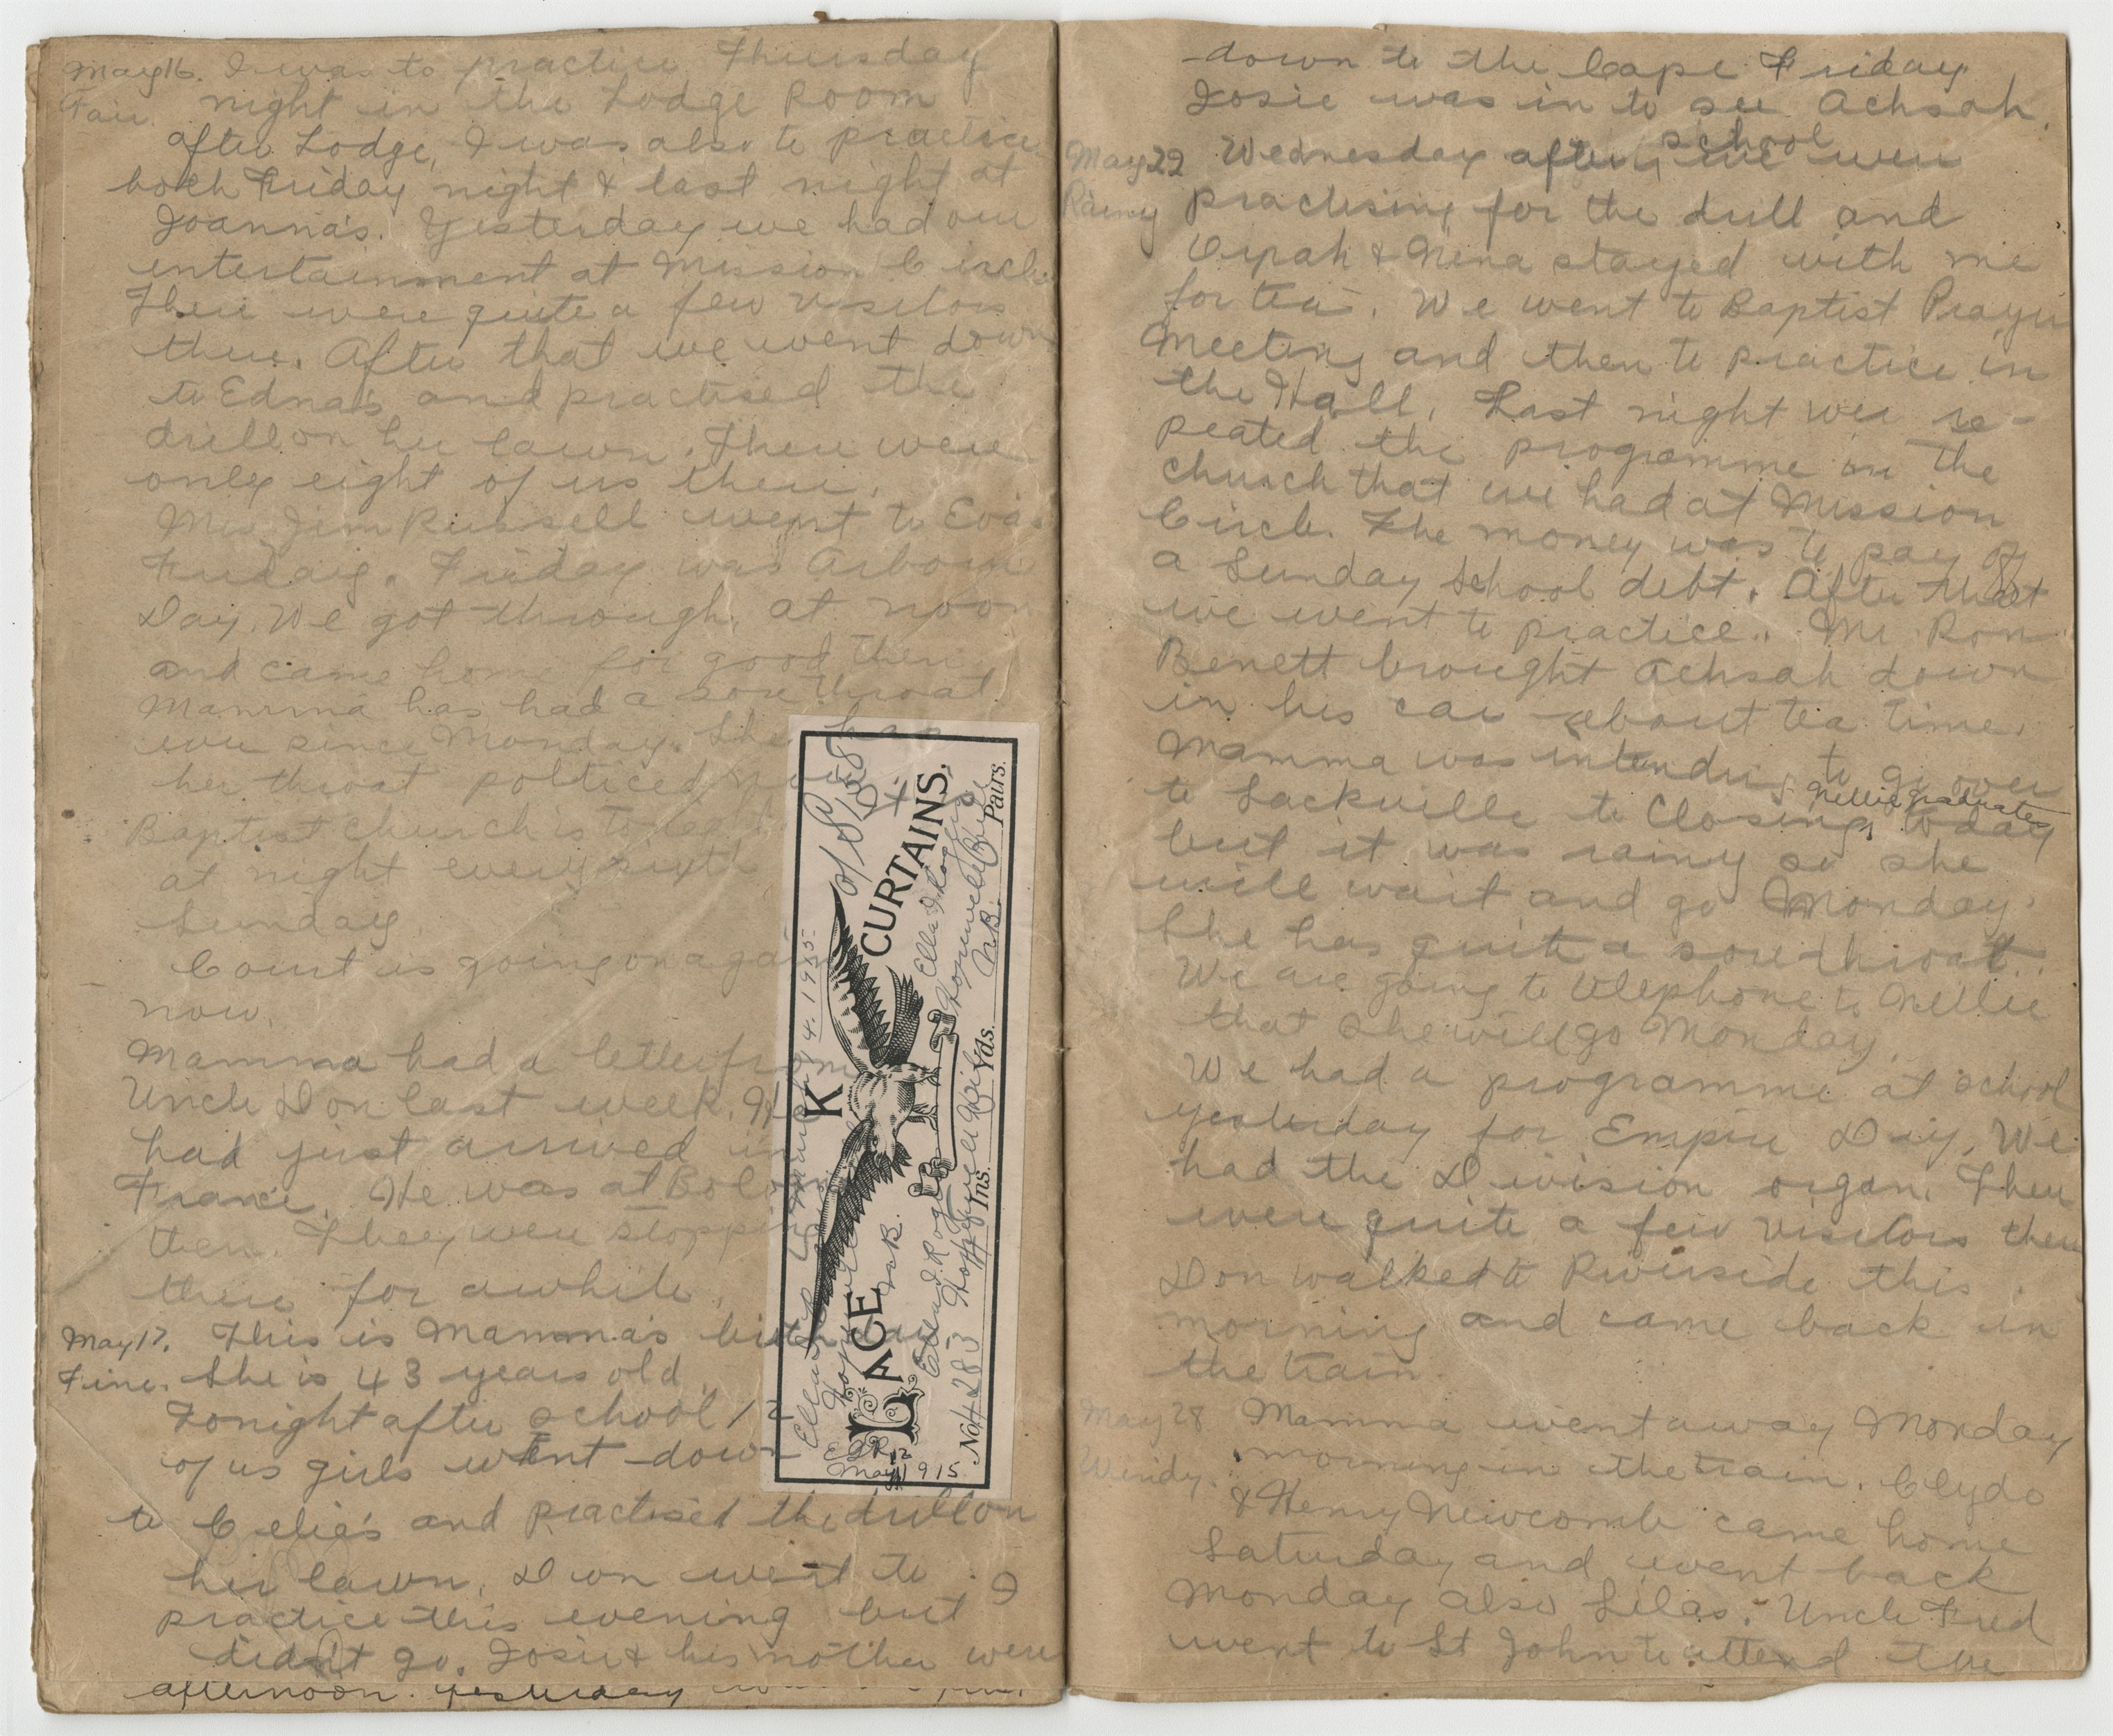 May 16. I was to practice Thursday
Fair. night in the Lodge Room
after Lodge, I was also to practice
both Friday night & last night at
Joanna's. Yesterday we had our
entertainment at Mission Circle
There were quite a few visitors
there. After that we went down
to Edna's and practised the
drill on her lawn. There were
only eight of us there.
Mrs Jim Russell went to Eva's
Friday. Friday was Arbour
Day. We got through at noon
and came home for good then
Mamma has had a sore throat
ever since Monday. She has
her throat polticed now
Baptist church is to be
at night every sixth
Sunday
Court is going on again
now.
Mamma had a letter from
Uncle Don last week. He
had just arrived in
France. He was at
then. They were stopping
there for awhile.
May 17. This is Mamma's birthday
Fine. She is 43 years old.
Tonight after school 12
of us girls went down
to Celie's and practised the drill on
her lawn. Don went to
practice this evening but I
didn't go. Josie & his mother were
afternoon. yesterday
LACE K CURTAINS.
of S 1558
March 4. 1955
Hopewell
N.B.
Ella I Rogers
Hopewell Hill
N.B.
Ella I. Rogers
Hopewell Hill
No. 4283 Ins. Yds. Pairs.
E I R
May 12 1915
down to the Cape Friday
Josie was in to see Achsah.
May 22 Wednesday after school we were
Rainy practising for the drill and
Orpah & Nena stayed with me
for tea. We went to Baptist Prayer
Meeting and then to practice in
the Hall. Last night wer re-
peated the programme in the
church that we had at Mission
Circle. The money was to pay off
a Sunday School debt. After that
we went to practice. Mr Ron
Benett brought Achsah down
in his car about tea time.
Mamma was intending to go over
to Sackville to Closing, Nellie graduates today
but it was rainy so she
will wait and go Monday.
She has quite a sore throat.
We are going to telephone to Nellie
that she will go Monday.
We had a programme at school
yesterday for Empire Day. We
had the Division organ. There
were quite a few visitors there
Don walked to Riverside this
morning and came back in
the train.
May 28 Mamma went away Monday
Windy. morning in the train. Clyde
& Henry Newcomb came home
Saturday and went back
Monday also Silas. Uncle Fred
went to St John to attend the